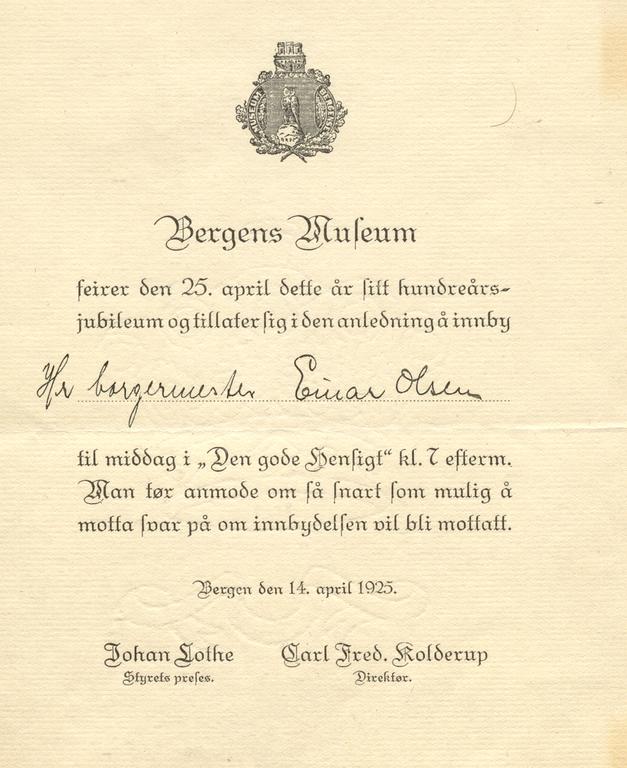 MUSEUM BERGENSE
Bergens Muſeum
feirer den 25. april dette år ſitt hundreårs-
jubileum og tillater ſig i den anledning å innby
Hr borgermester Einar Olsen
til middag i „Den gode Henſigt“ kl. 7 efterm.
Man tør anmode om ſå ſnart ſom mulig å
motta ſvar på om innbydelſen vil bli mottatt.
Bergen den 14. april 1925.
Johan Lothe Carl Fred. Kolderup
Styrets preſes. Direktør.